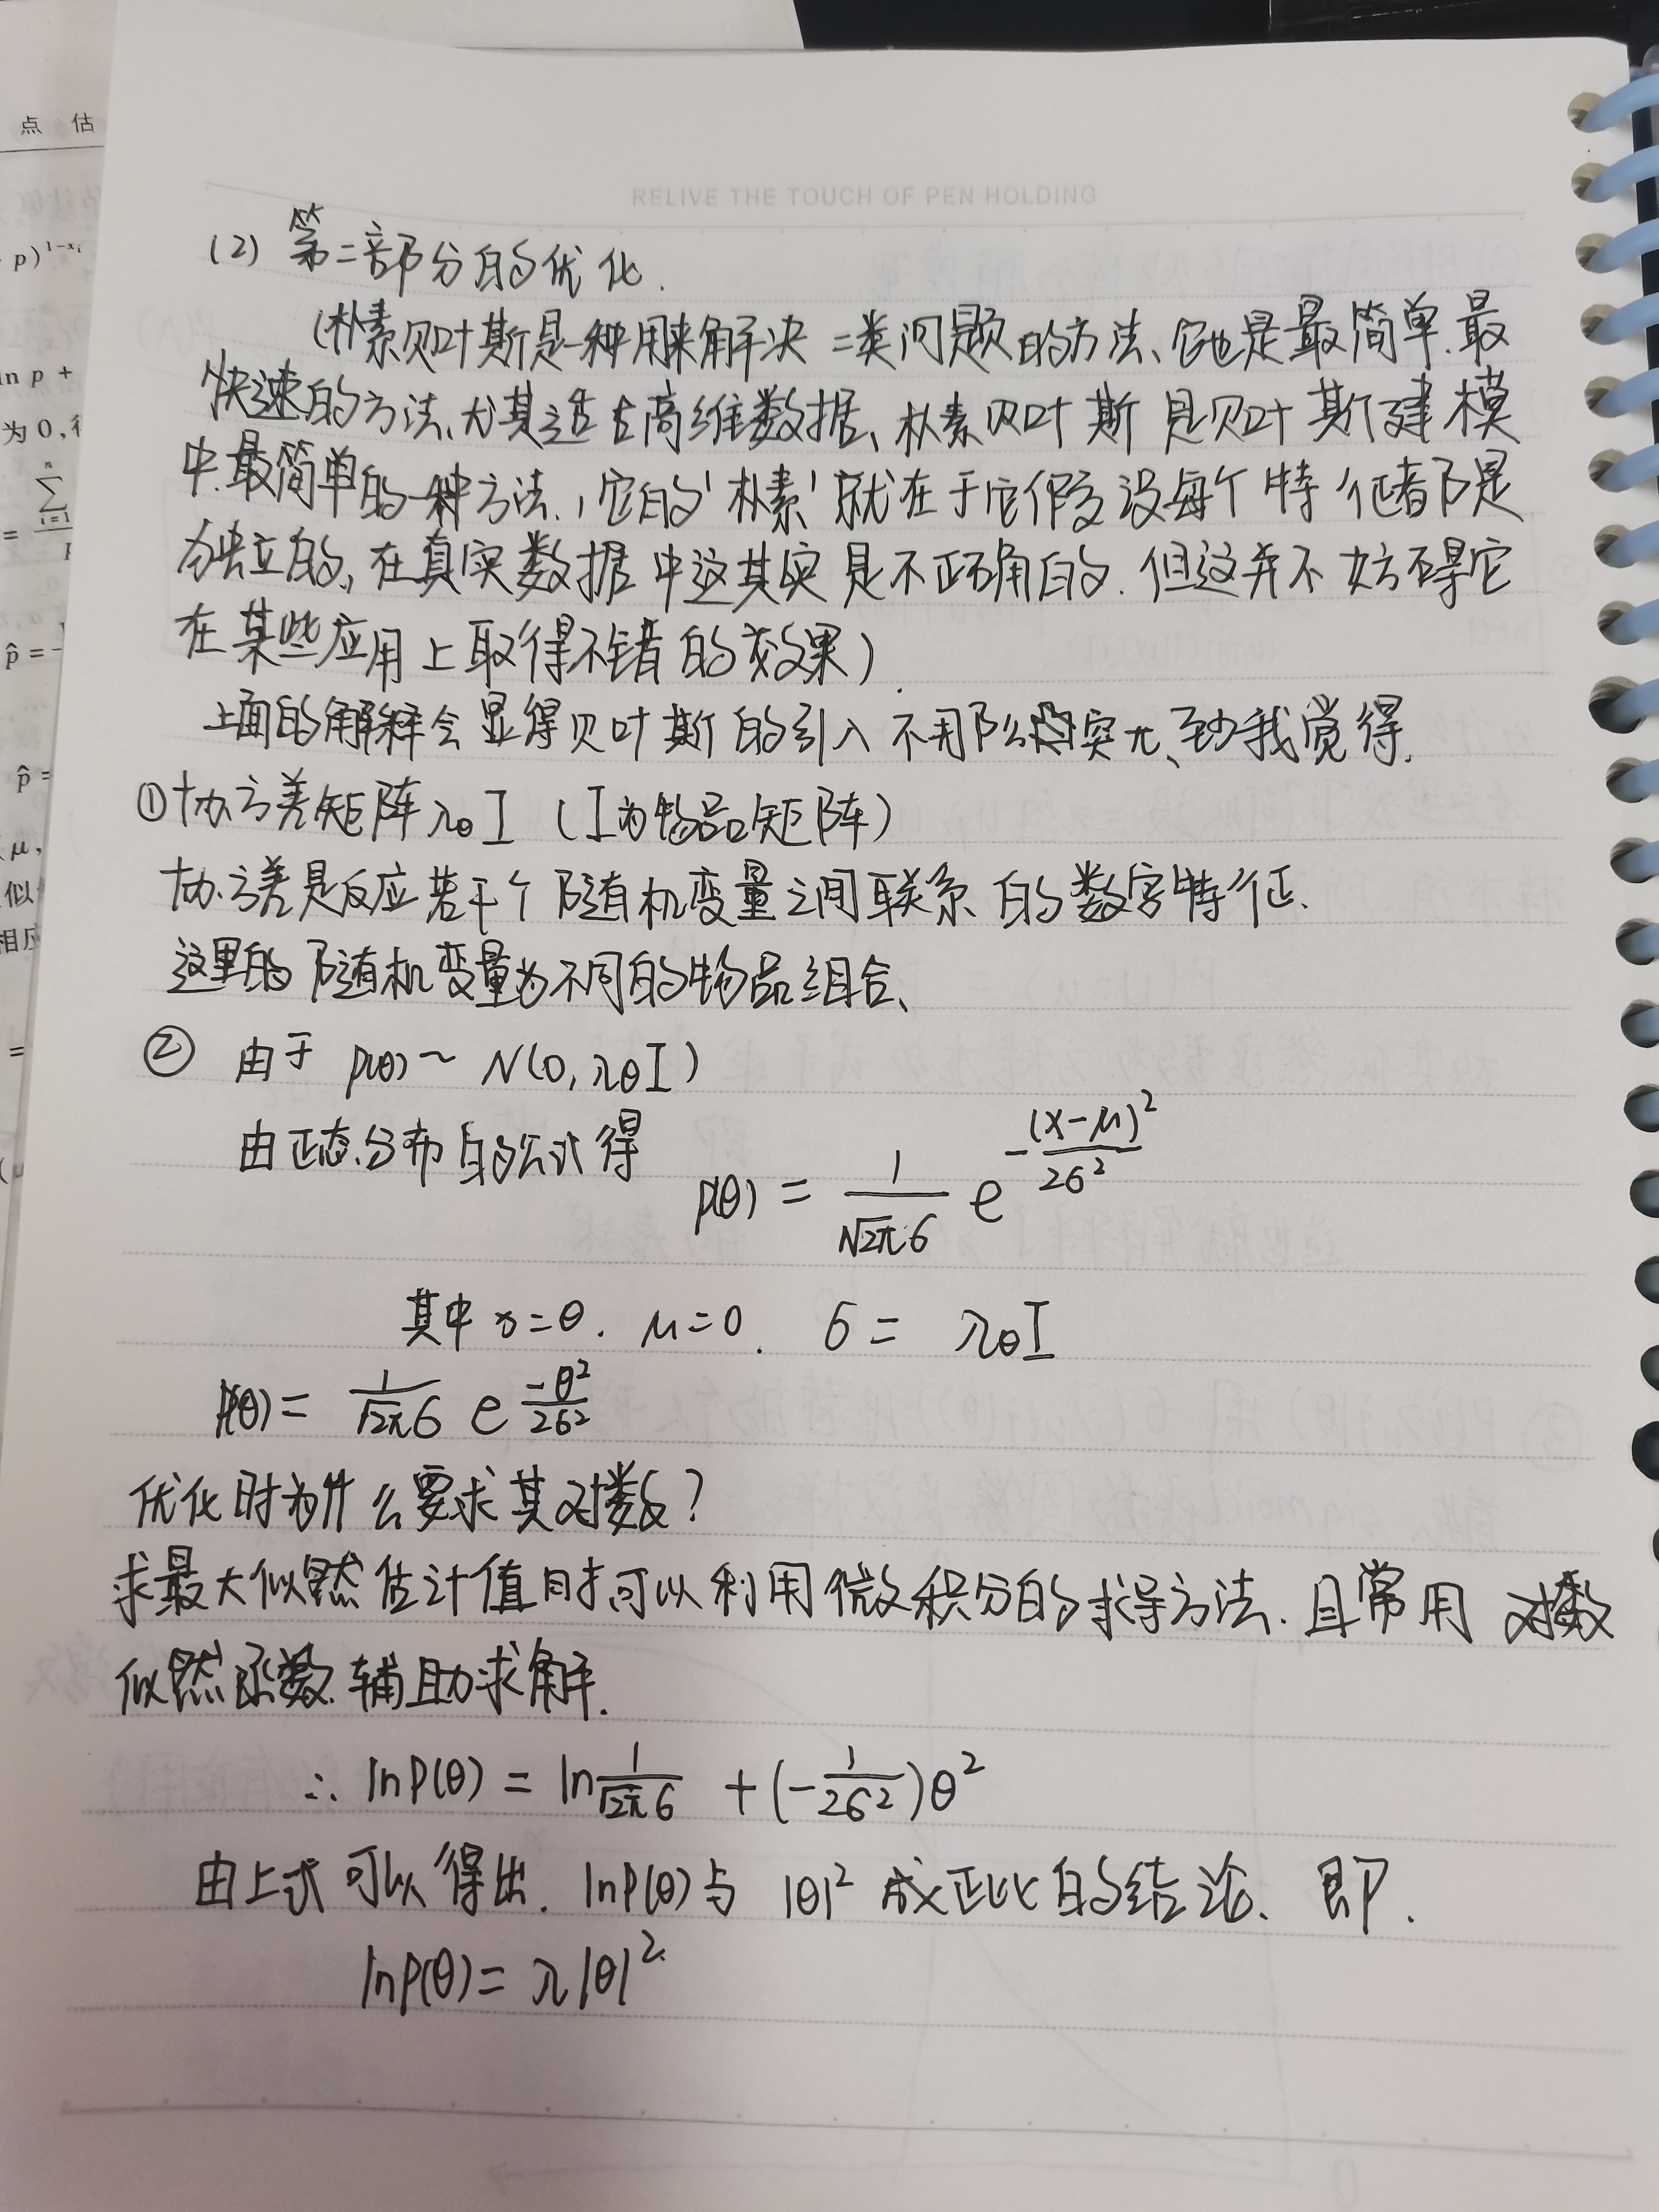 点 估
p)^{1-x_i}
ln p +
为 0,
\sum_{i=1}^{n}
=
\hat{p} =
\hat{p} =
μ,
似
相应
=
RELIVE THE TOUCH OF PEN HOLDING
(2) 第二部分的优化.
(朴素贝叶斯是一种用来解决二类问题的方法、它也是最简单.最
快速的方法、尤其适合高维数据、朴素贝叶斯是贝叶斯建模
中最简单的一种方法.,它的'朴素'就在于它假设每个特征都是
独立的,在真实数据中这其实是不正确的.但这并不妨碍它
在某些应用上取得不错的效果).
上面的解释会显得贝叶斯的引入不那么突兀、至少我觉得.
① 协方差矩阵 λ_θ I (I为物品矩阵)
协方差是反应若干个随机变量之间联系的数字特征.
这里的随机变量为不同的物品组合、
② 由于 p(θ) ~ N(0, λ_θ I)
由正态分布的公式得
p(θ) = \frac{1}{\sqrt{2π}σ} e^{-\frac{(x-μ)^2}{2σ^2}}
其中 x=θ. μ=0. σ = λ_θ I
p(θ) = \frac{1}{\sqrt{2π}σ} e^{\frac{-θ^2}{2σ^2}}
优化时为什么要求其对数?
求最大似然估计值时可以利用微积分的求导方法.且常用对数
似然函数辅助求解.
∴ lnP(θ) = ln\frac{1}{\sqrt{2π}σ} + (-\frac{1}{2σ^2})θ^2
由上式可以得出. lnP(θ)与 |θ|^2 成正比的结论、即.
lnP(θ) = λ|θ|^2